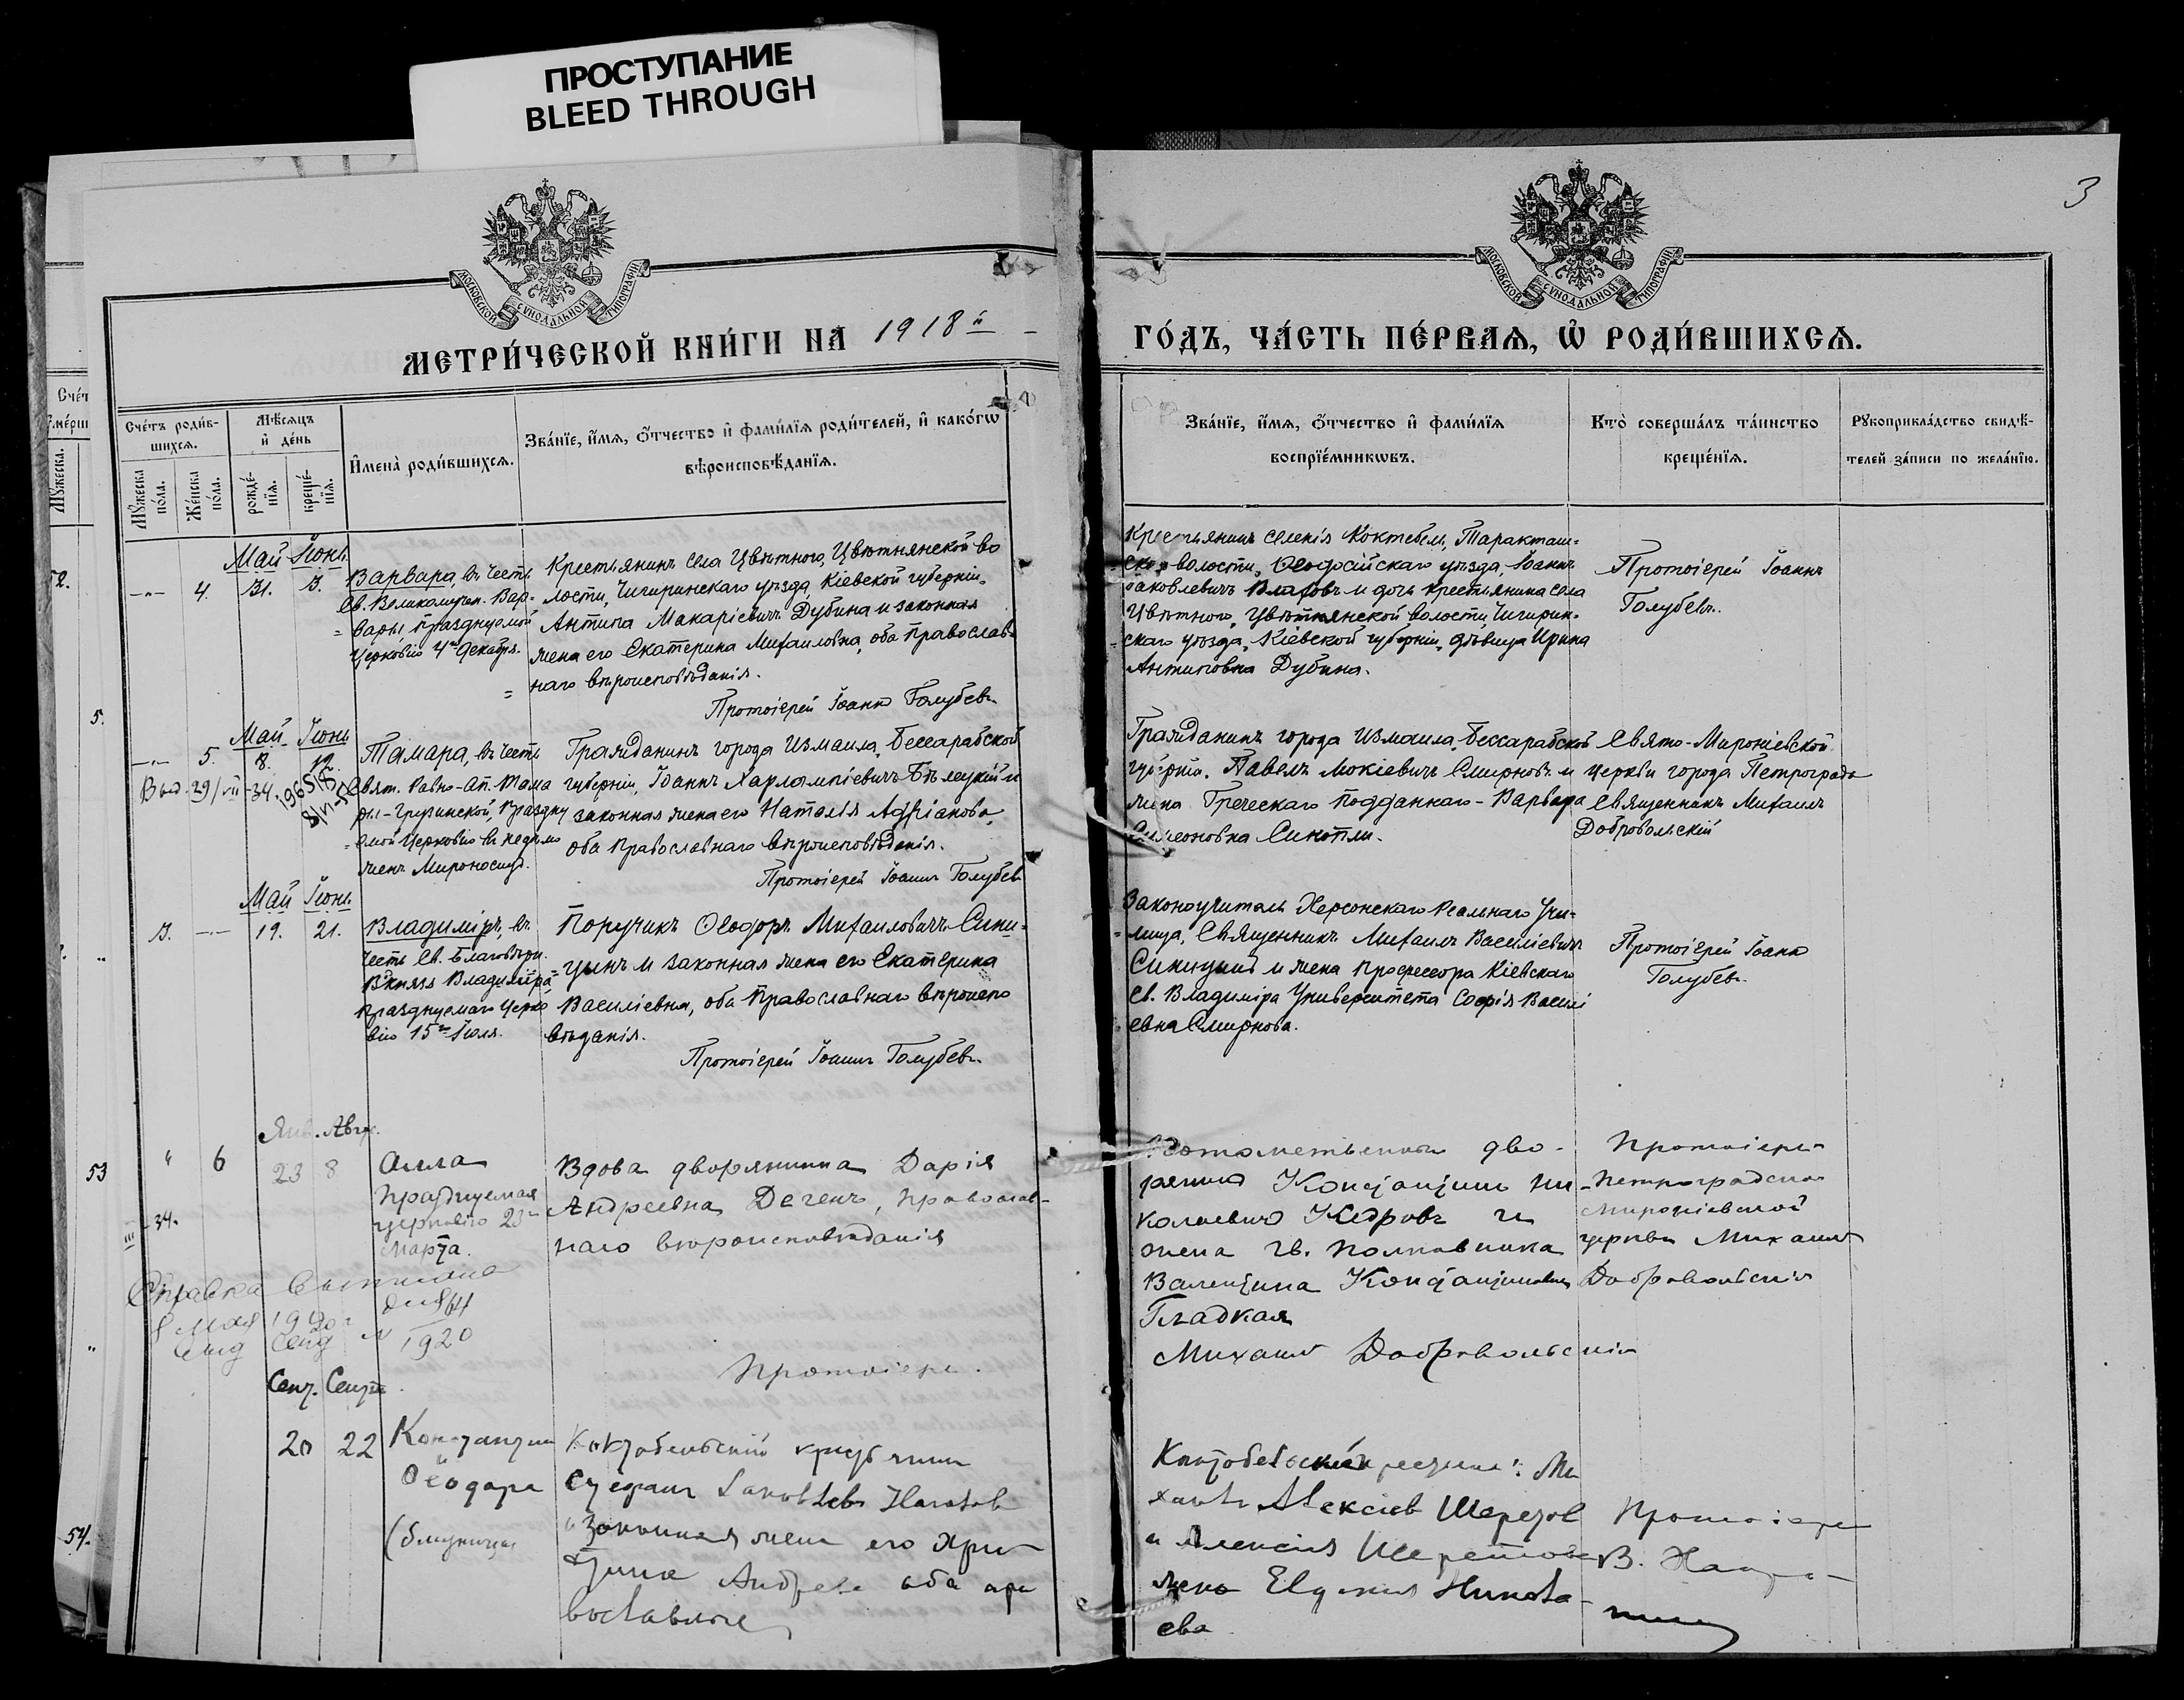 ПРОСТУПАНИЕ
BLEED THROUGH
3
МОСКОВСКОЙ СУНОДАЛЬНОЙ ТИПОГРАФІИ
МОСКОВСКОЙ СУНОДАЛЬНОЙ ТИПОГРАФІИ
МЕТРИ́ЧЕСКОЙ КНИ́ГИ НА 1918й
ГО́ДЪ, ЧА́СТЬ ПЕ́РВАѦ, Ѿ РОДИ́ВШИХСѦ.
Сче́тъ роди́в-
шихсѧ.
Мѣ́сѧцъ
и҆ де́нь
Му́жеска
по́ла.
Же́нска
по́ла.
рожде́-
нїѧ.
креще́-
нїѧ.
И҆мена̀ роди́вшихсѧ.
Зва́нїе, и҆́мѧ, ѻ҆́тчество и҆ фами́лїѧ роди́телей, и҆ како́гѡ
вѣроисповѣ́данїѧ.
Зва́нїе, и҆́мѧ, ѻ҆́тчество и҆ фами́лїѧ
воспрїе́мникѡвъ.
Кто̀ соверша́лъ та́инство
креще́нїѧ.
Рꙋкоприкла́дство свидѣ́-
телей за́писи по жела́нїю.
Май Іюнь
4. 31. 3.
Варвара, въ честь
Св. Великомучен. Вар-
вары, празднуемой
Церковію 4го Декабря.
Крестьянинъ села Цвѣтного, Цвѣтнянской во
лости, Чигиринскаго уѣзда, Кіевской губерніи,
Антипа Макаріевичъ Дубина и законная
жена его Екатерина Михаиловна, оба православ-
наго вѣроисповѣданія.
Протоіерей Іоаннъ Голубевъ
Крестьянинъ селенія Коктебель, Таракташ-
ской волости, Ѳеодосійскаго уѣзда, Іоаннъ
Іаковлевичъ Власовъ и дочь крестьянина села
Цвѣтного, Цвѣтнянской волости, Чигирин-
скаго уѣзда, Кіевской губерніи, дѣвица Ирина
Антиповна Дубина.
Протоіерей Іоаннъ
Голубевъ.
Май Іюнь
5. 8. 12.
Выд. 29/VII-34
Тамара, въ честь
Свят. Равно-Ап. Тама
ры-Грузинской, празdну
емой Церковію въ недѣлю
женъ Мироносицъ.
Гражданинъ города Измаила, Бессарабской
губерніи, Іоаннъ Харлампіевичъ Бѣлецкій и
законная жена его Наталія Адріанова,
оба православнаго вѣроисповѣданія.
Протоіерей Іоаннъ Голубев
Гражданинъ города Измаила, Бессарабской
губерніи, Павелъ Мокіевичъ Смирновъ и
жена Греческаго подданнаго-Варвара
Симеоновна Синопли.
Свято-Мироніевской
церкви города Петрограда
Священникъ Михаилъ
Добровольскій
Май Іюнь
3. 19. 21.
Владиміръ, въ
честь Св. Благовѣрн.
В. князя Владиміра,
празднуемаго Церко
вію 15го Іюля.
Поручикъ Ѳеодоръ Михаиловичъ Сини-
цынъ и законная жена его Екатерина
Василіевна, оба православнаго вѣроиспо
вѣданія.
Протоіерей Іоаннъ Голубевъ
Законоучитель Херсонскаго Реальнаго Учи-
лища, Священникъ Михаилъ Василіевичъ
Синицынъ и жена профессора Кіевскаго
Св. Владиміра Университета Софія Василі
евна Смирнова.
Протоіерей Іоаннъ
Голубевъ
Янв. Авг.
6 23 8
Алла
празднуемая
церковію 23го
марта.
Вдова дворянина Дарія
Андреевна Дегенъ, православ-
наго вѣроисповѣданія
Протоіерей
Потомственный дво-
рянинъ Константинъ Ни-
колаевичъ Кедровъ и
жена гв. полковника
Валентина Константиновна
Гладкая
Михаилъ Добровольскій
Протоіерей
Петроградской
Мироніевской
церкви Михаилъ
Добровольскій
Справка выписана
8 мая
1920
Сент. Сент.
20 22
Константин
и
Ѳеодора
(близнецы
Коктебельскій крестьянин
Стефанъ
и законная жена его Хрис
тина Андреева оба пра
вославные
Коктебельскій крестьянин: Ми
хаилъ Алексіев
и Алексія
жена Евдокія Никола-
ева
Протоіерей
В.
53
34.
54.